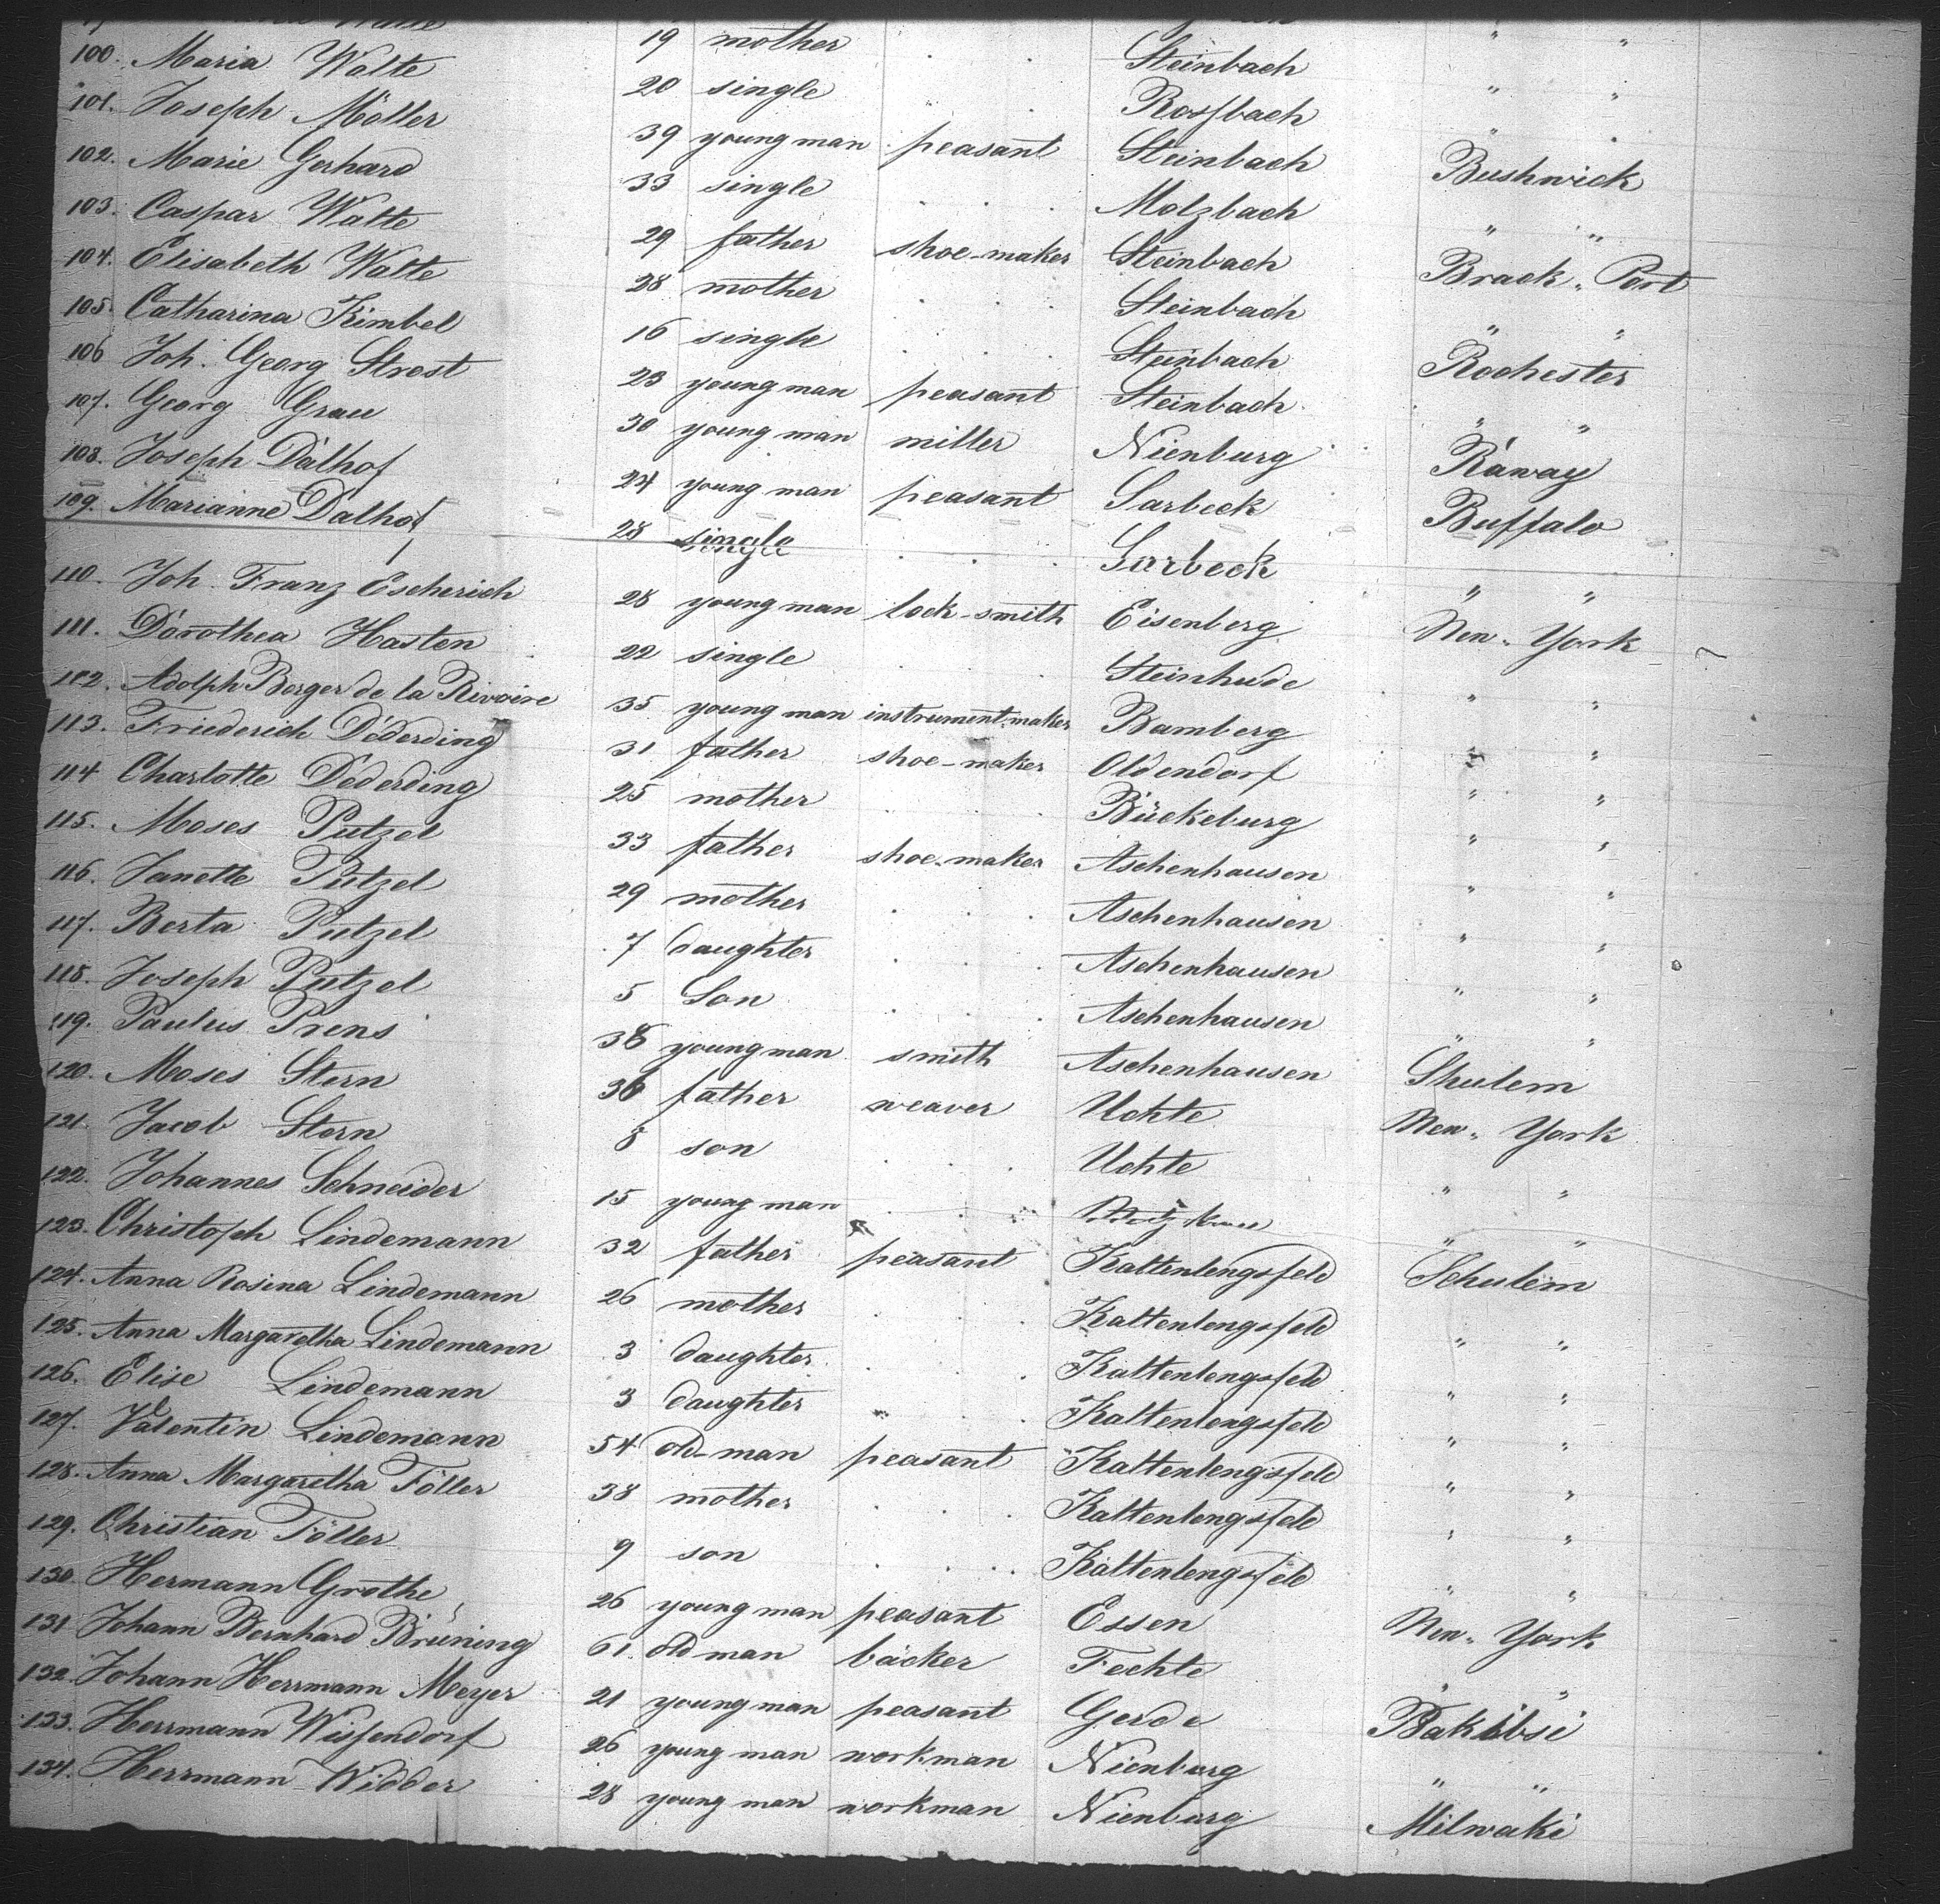 19 mother Steinbach " "
100. Maria Walte 20 single Rossbach " "
101. Joseph Möller 39 young man peasant Steinbach Bushwick
102. Marie Gerhard 33 single Molzbach " "
103. Caspar Walte 29 father shoe-maker Steinbach Brack-Port
104. Elisabeth Walte 28 mother Steinbach " "
105. Catharina Kimbel 16 single Steinbach Rochester
106 Joh. Georg Strost 23 young man peasant Steinbach " "
107. Georg Grau 30 young man miller Nienburg Raway
108. Joseph Dalhof 24 young man peasant Sarbeck Buffalo
109. Marianne Dalhof 28 single Sarbeck " "
110. Joh. Franz Escherich 28 young man lock-smith Eisenberg New-York
111. Dorothea Hasten 22 single Steinhude " "
112. Adolph Berger de la Rivoire 35 young man instrumentmaker Bamberg " "
113. Friederich Dederding 31 father shoe-maker Oldendorf " "
114 Charlotte Dederding 25 mother Bückeburg " "
115. Moses Putzel 33 father shoe-maker Aschenhausen " "
116. Janette Putzel 29 mother Aschenhausen " "
117. Berta Putzel 7 daughter Aschenhausen " "
118. Joseph Putzel 5 Son Aschenhausen " "
119. Paulus Prens 38 young man smith Aschenhausen Shulem
120. Moses Stern 36 father weaver Uchte New-York
121. Jacob Stern 8 son Uchte " "
122. Johannes Schneider 15 young man " "
123. Christoph Lindemann 32 father peasant Kaltenlengsfeld Schulem
124. Anna Rosina Lindemann 26 mother Kaltenlengsfeld " "
125. Anna Margaretha Lindemann 3 daughter Kaltenlengsfeld " "
126. Elise Lindemann 3 daughter Kaltenlengsfeld " "
127. Valentin Lindemann 54 old-man peasant Kaltenlengsfeld " "
128. Anna Margaretha Töller 38 mother Kaltenlengsfeld " "
129. Christian Töller 9 son Kaltenlengsfeld " "
130. Hermann Grothe 26 young man peasant Essen New-York
131 Johann Bernhard Brüning 61. old man bäcker Fechte " "
132. Johann Herrmann Meyer 21 young man peasant Gerde Bakibsi
133. Herrmann Wissendorf 26 young man workman Nienburg " "
134. Herrmann Widder 28 young man workman Nienburg Milwaki